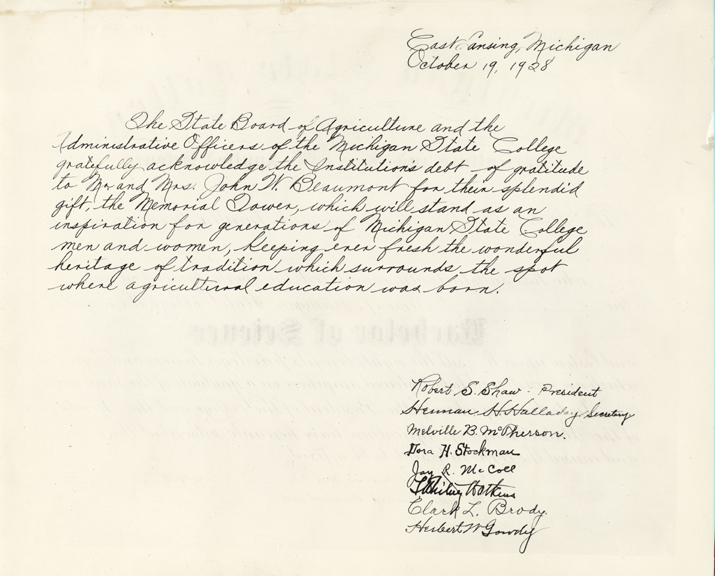 East Lansing, Michigan
October 19, 1928
The State Board of Agriculture and the
Administrative Officers of the Michigan State College
gratefully acknowledge the Institution's debt of gratitude
to Mr. and Mrs. John W. Beaumont for their splendid
gift, the Memorial Tower, which will stand as an
inspiration for generations of Michigan State College
men and women, keeping ever fresh the wonderful
heritage of tradition which surrounds the spot
where agricultural education was born.
Bachelor of Science
Robert S. Shaw - President
Herman H. Halladay, Secretary
Melville B. McPherson.
Dora H. Stockman
Jay R. McColl
Watkins
Clark L. Brody.
Herbert W Gowdy